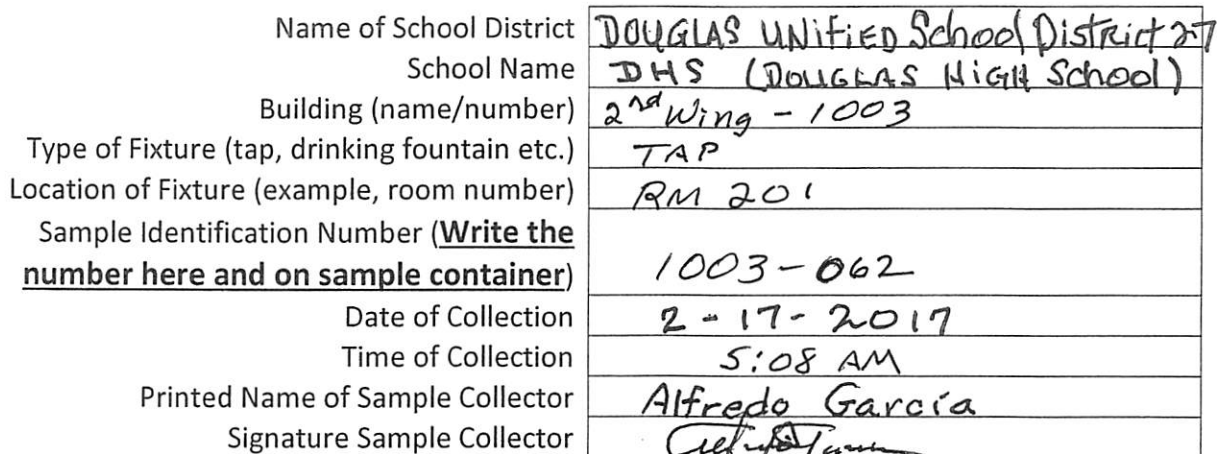 Name of School District DOUGLAS UNIFIED School District 27
School Name DHS (DOUGLAS HIGH School)
Building (name/number) 2nd Wing - 1003
Type of Fixture (tap, drinking fountain etc.) TAP
Location of Fixture (example, room number) RM 201
Sample Identification Number (Write the
number here and on sample container) 1003-062
Date of Collection 2-17-2017
Time of Collection 5:08 AM
Printed Name of Sample Collector Alfredo Garcia
Signature Sample Collector